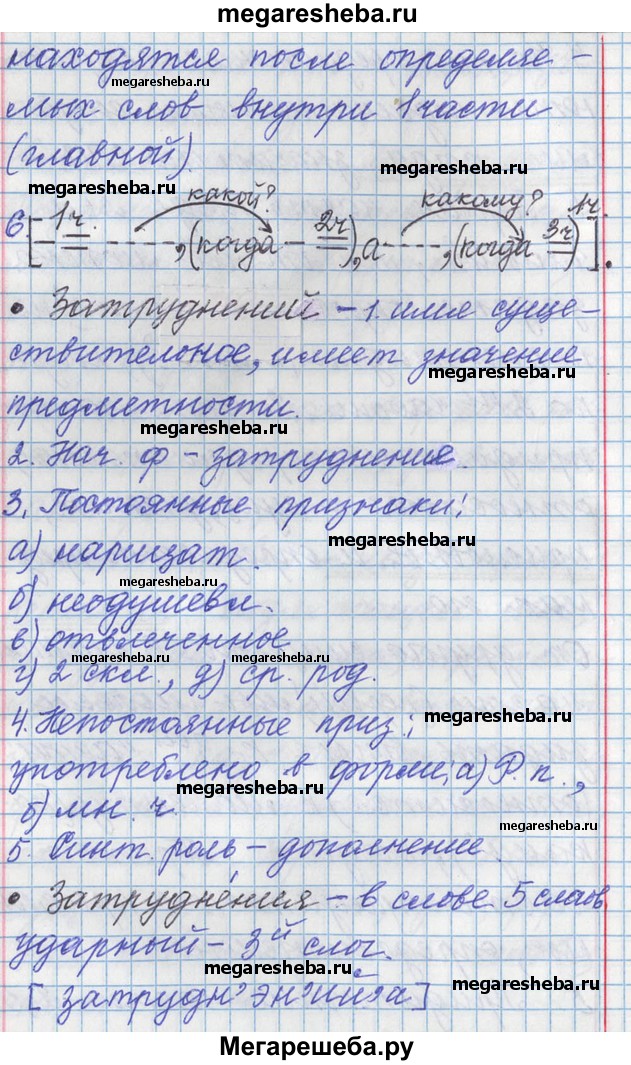 megaresheba.ru
находятся после определяе-
megaresheba.ru
мых слов внутри 1 части
(главной).
megaresheba.ru
megaresheba.ru
какой? какому?
6. [1ч. , (когда 2ч), а , (когда 3ч) 1ч.].
• Затруднений – 1. имя суще-
ствительное, имеет значение
megaresheba.ru
предметности.
megaresheba.ru
2. Нач. ф – затруднение.
3. Постоянные признаки:
а) нарицат.
megaresheba.ru
megaresheba.ru
б) неодушевл.
в) отвлеченное
megaresheba.ru megaresheba.ru
г) 2 скл., д) ср. род.
4. Непостоянные приз:
megaresheba.ru
употреблено в форме: а) Р.п.,
megaresheba.ru
б) мн. ч.
megaresheba.ru
5. Синт. роль – дополнение.
• Затруднения – в слове 5 слогов
ударный – 3й слог.
megaresheba.ru
[затрудн'эн'ий'а]
megaresheba.ru
Мегарешеба.ру